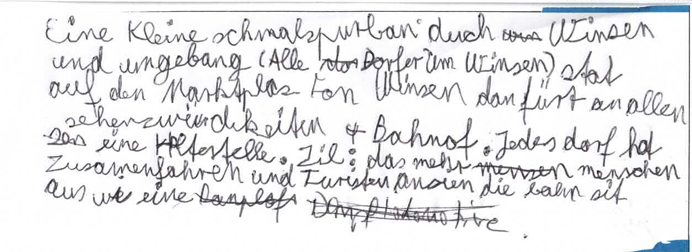 Eine Kleine schmalspurban duch Winsen
und umgebang (Alle Dorfer um Winsen) stat
auf den Marktplas fon Winsen dan fürt an allen
sehenzwürdikeiten + Bahnof. Jedes dorf hat
eine Haltestelle. Zil: das mehr menschen
Zusamenfahren und Turisten ansien die bahn sit
aus we eine Dampflokomotive